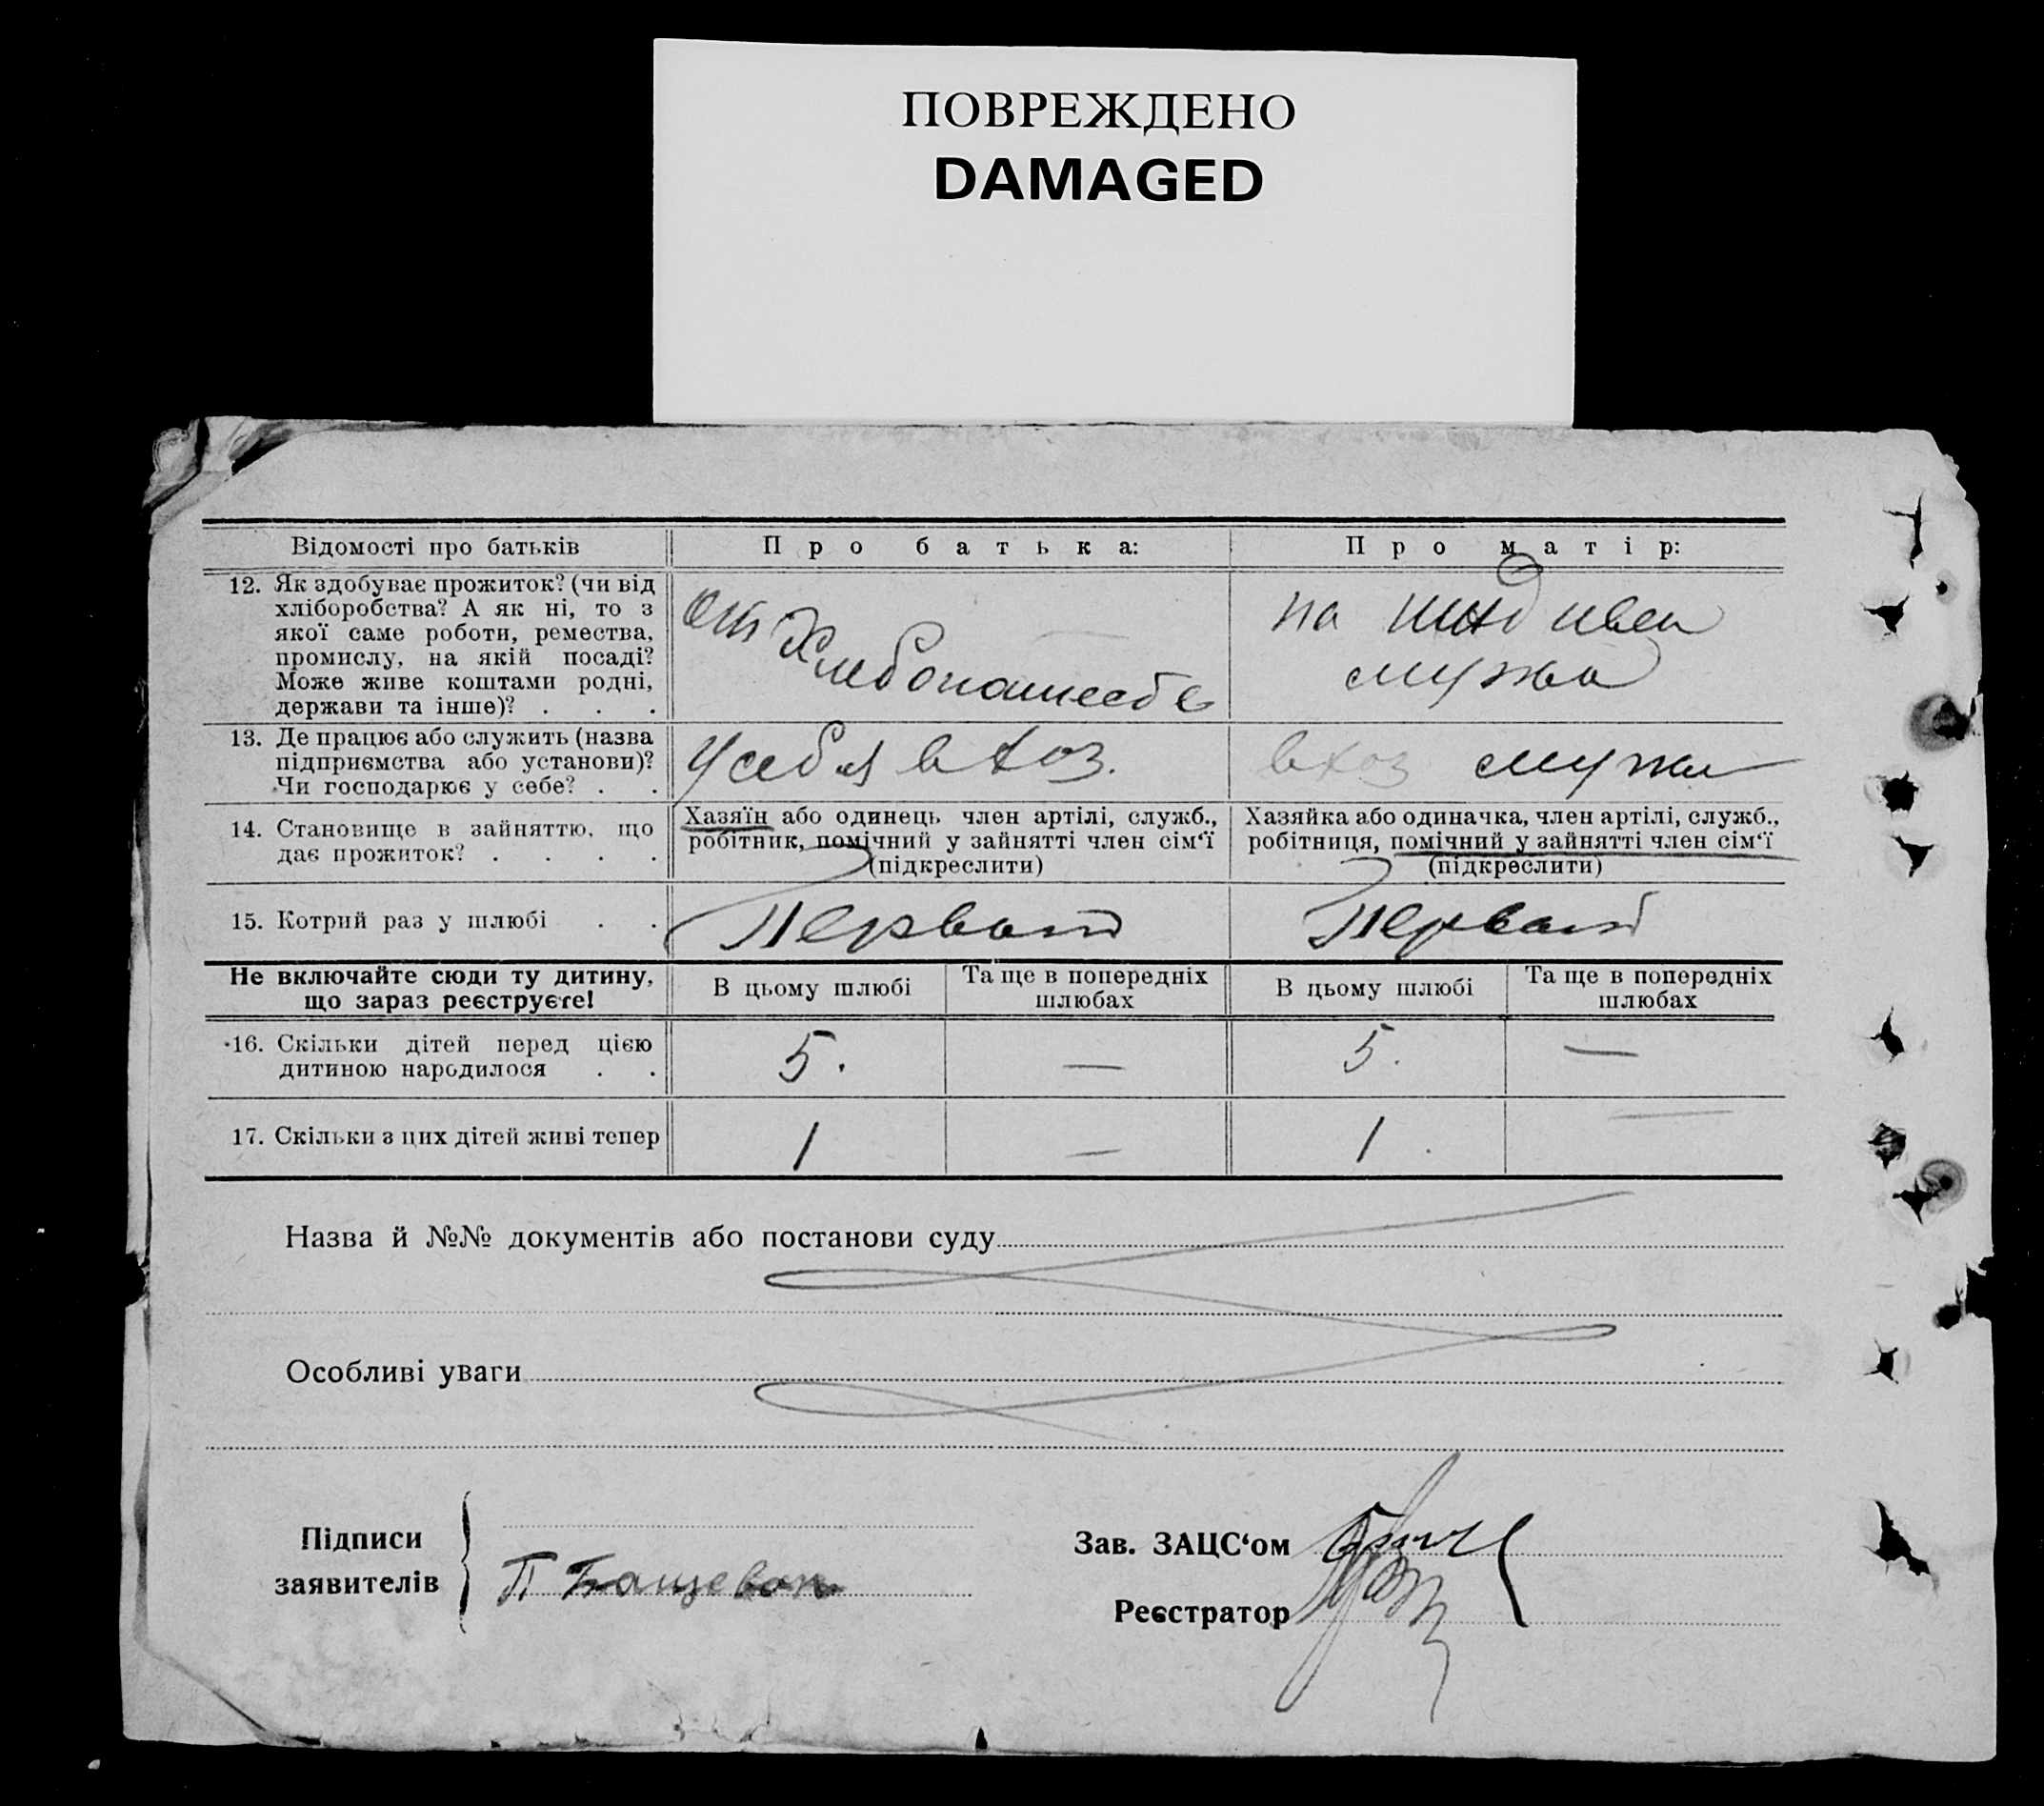 ПОВРЕЖДЕНО
DAMAGED
Відомості про батьків
Про батька:
Про матір:
12. Як здобуває прожиток? (чи від
хліборобства? А як ні, то з
якої саме роботи, ремества,
промислу, на якій посаді?
Може живе коштами родні,
держави та інше)? . . .
от
на
мужа
13. Де працює або служить (назва
підприємства або установи)?
Чи господарює у себе? . .
У себя в хоз.
в хоз мужа
14. Становище в зайняттю, що
дає прожиток? . . . .
Хазяїн або одинець член артілі, служб.,
робітник, помічний у зайнятті член сім‘ї
(підкреслити)
Хазяйка або одиначка, член артілі, служб.,
робітниця, помічний у зайнятті член сім‘ї
(підкреслити)
15. Котрий раз у шлюбі . .
Первый
Первый
Не включайте сюди ту дитину,
що зараз реєструєте!
В цьому шлюбі
Та ще в попередніх
шлюбах
В цьому шлюбі
Та ще в попередніх
шлюбах
16. Скільки дітей перед цією
дитиною народилося . .
5.
—
5.
—
17. Скільки з цих дітей живі тепер
1
—
1.
—
Назва й №№ документів або постанови суду
Особливі уваги
Підписи
заявителів
П
Зав. ЗАЦС‘ом
Реєстратор